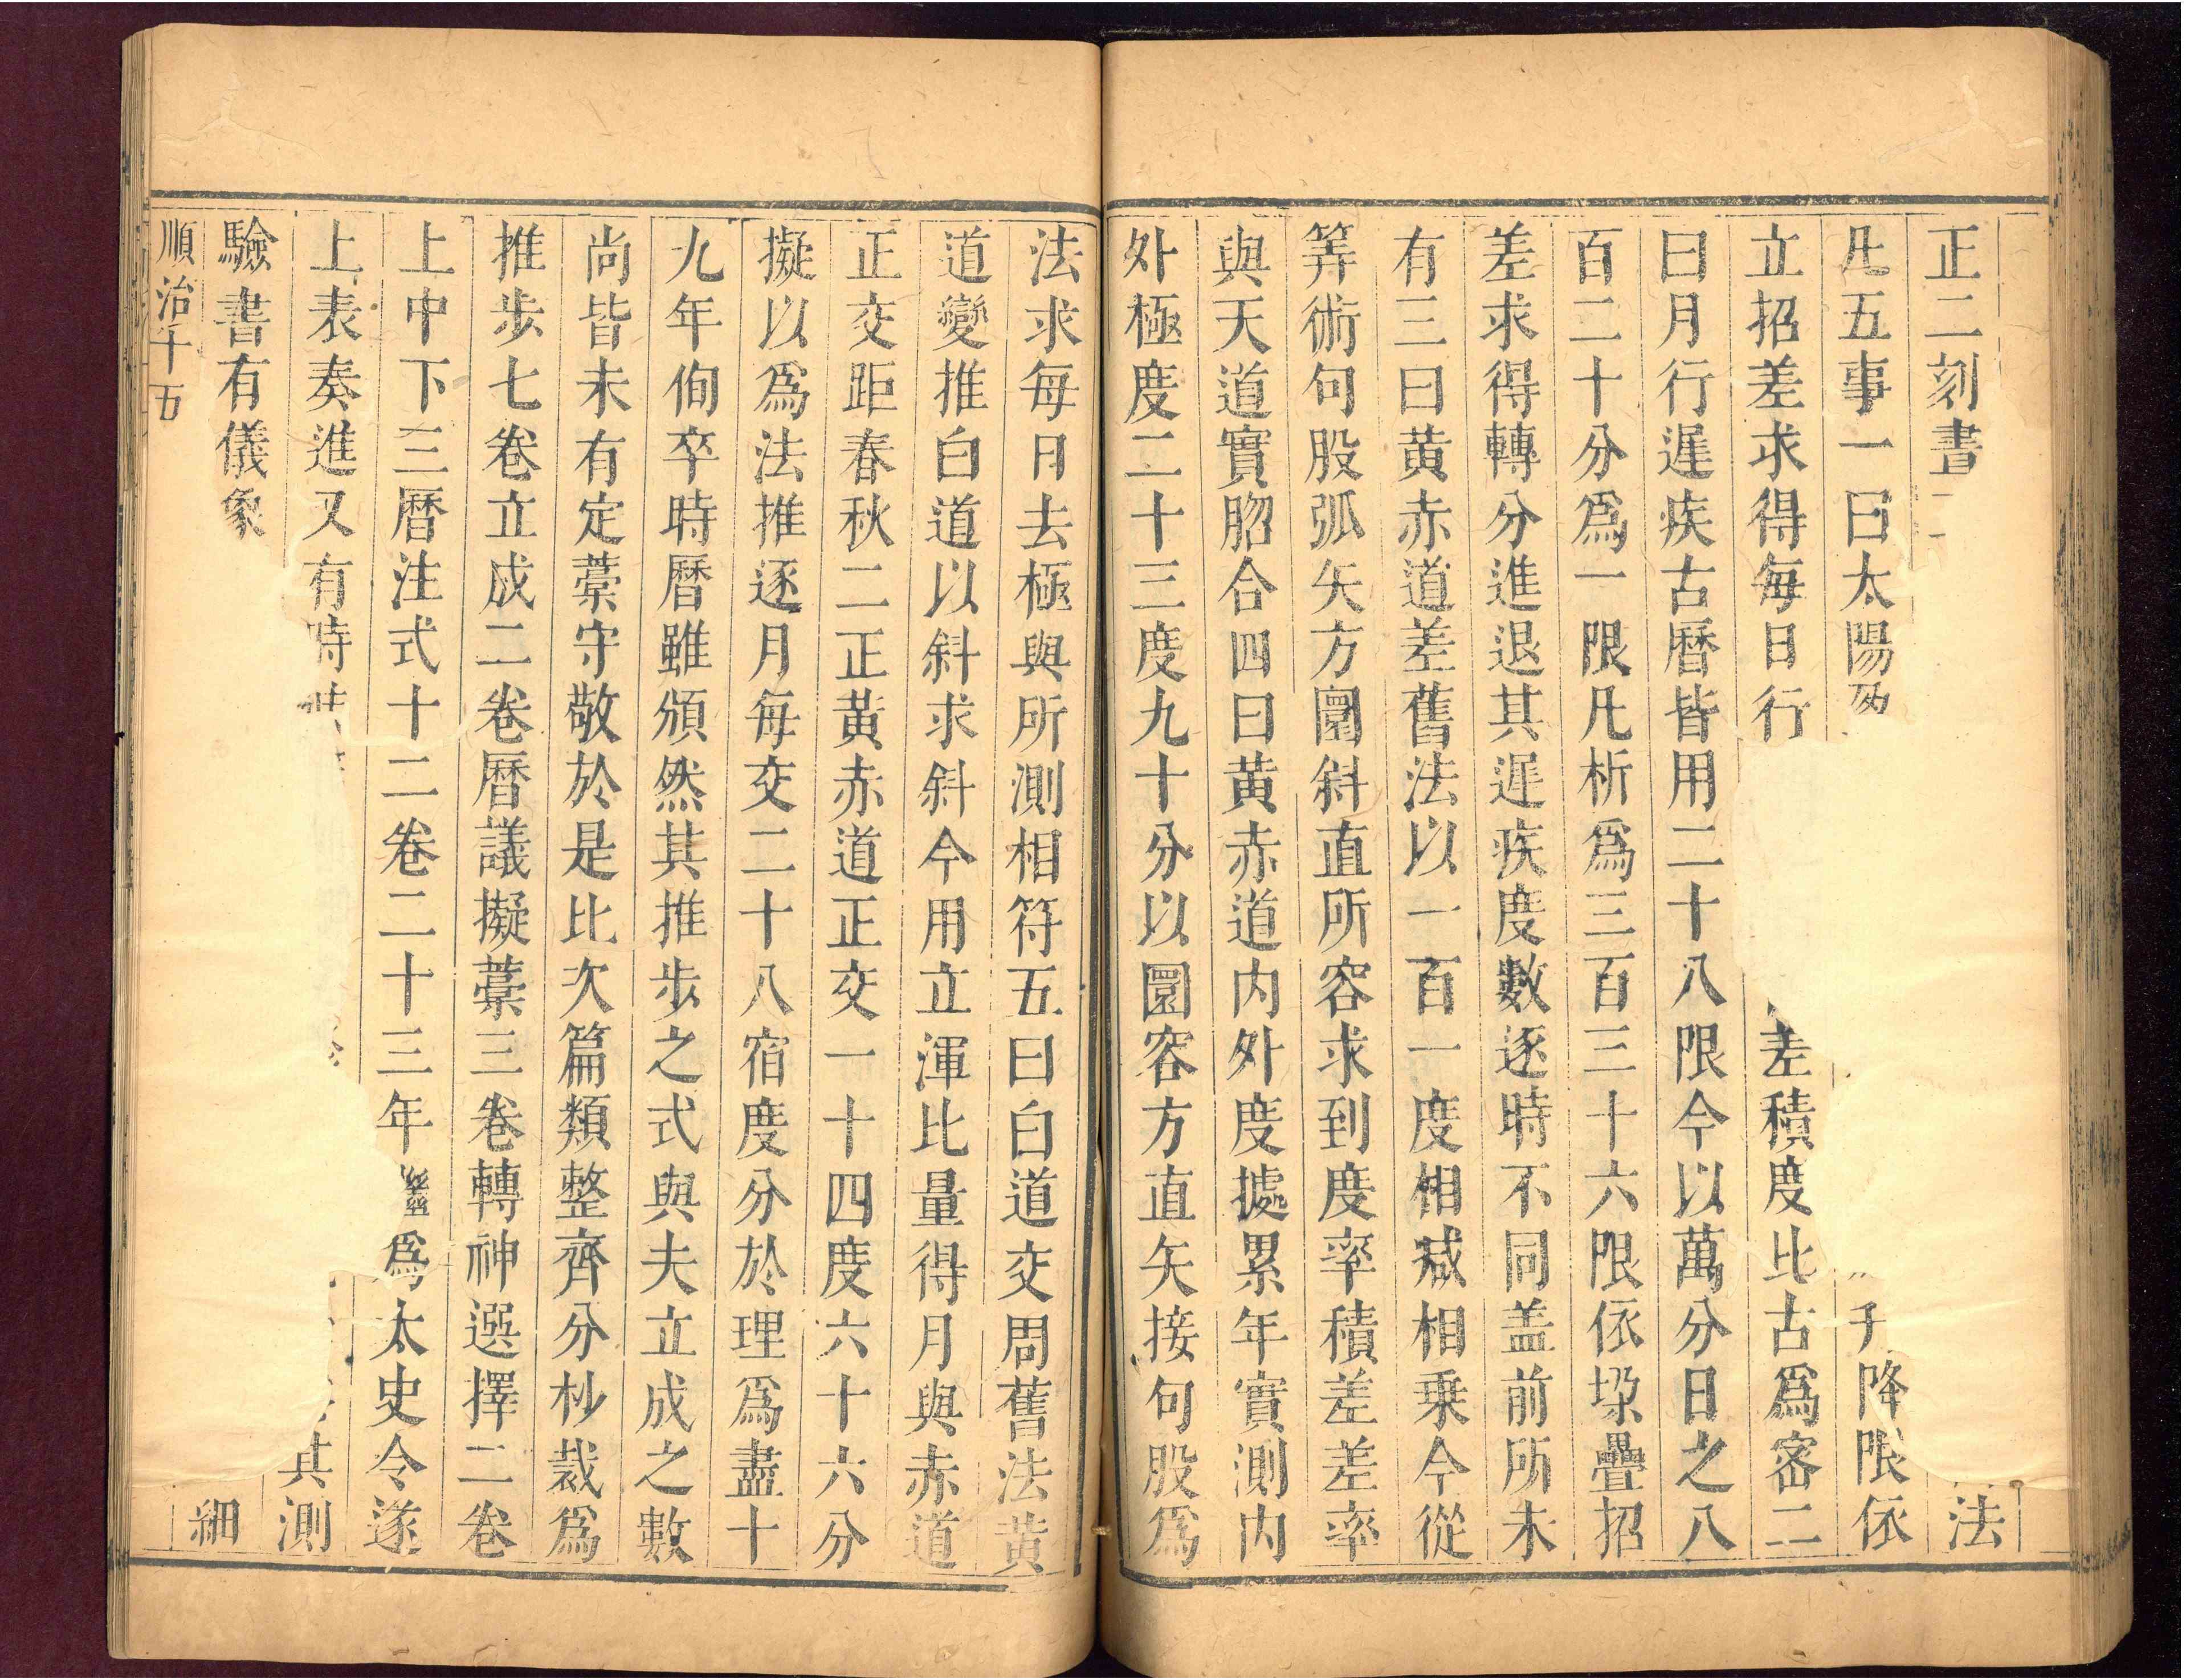 正二刻書法
凡五事一曰太陽降限依
立招差求得每日行差積度比古爲密二
曰月行遲疾古曆皆用二十八限今以萬分日之八
百二十分爲一限凡析爲三百三十六限依垜疊招
差求得轉分進退其遲疾度數逐時不同盖前所未
有三曰黄赤道差舊法以一百一度相減相乗今從
筭術句股弧矢方圜斜直所容求到度率積差差率
與天道實脗合四曰黄赤道内外度據累年實測内
外極度二十三度九十分以圜容方直矢接句股爲
法求每日去極與所測相符五曰白道交周舊法黄
道變推白道以斜求斜今用立渾比量得月與赤道
正交距春秋二正黄赤道正交一十四度六十六分
擬以爲法推逐月每交二十八宿度分於理爲盡十
九年恂卒時曆雖頒然其推步之式與夫立成之數
尚皆未有定藁守敬於是比次篇類整齊分杪裁爲
推步七卷立成二卷曆議擬藁三卷轉神選擇二卷
上中下三曆注式十二卷二十三年繼爲太史令遂
上表奏進又有時其測
驗書有儀象細
順治十五